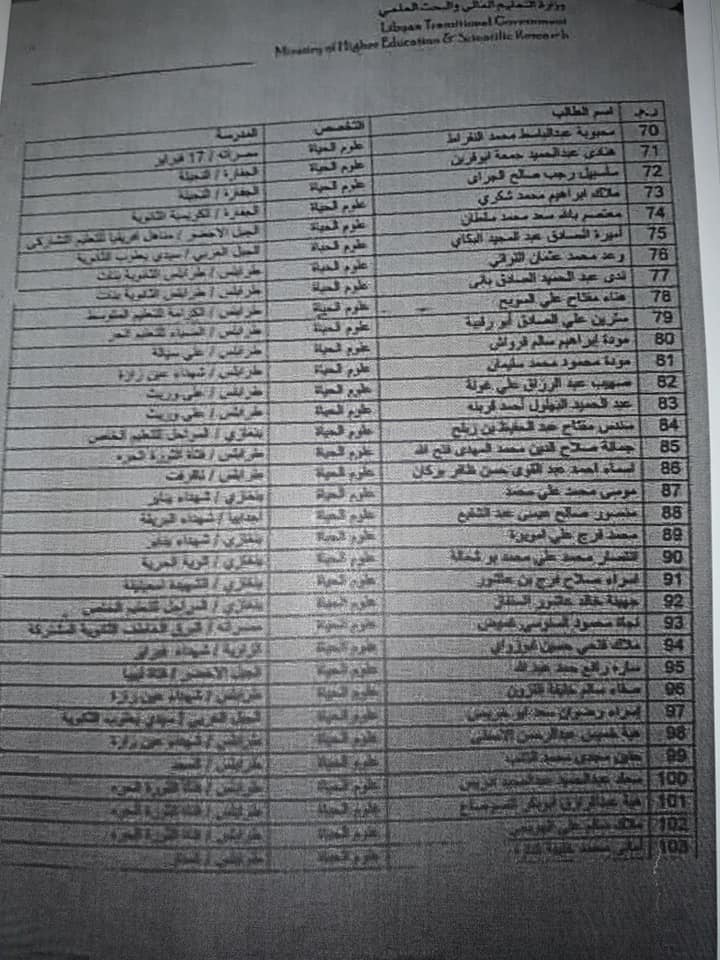 وزارة التعليم العالي والبحث العلمي
Libyan Transitional Government
Ministry of Higher Education & Scientific Research
ر.م. اسم الطالب التخصص المدرسة
70 محبوبة عبدالباسط محمد علوم الحياة مصراته / 17 فبراير
71 هنادي عبدالحميد جمعة ابوقرين علوم الحياة الجفارة / النجيلة
72 سلسبيل رجب صالح علوم الحياة الجفارة / النجيلة
73 ملاك ابراهيم محمد شكري علوم الحياة الجفارة / الكريمية الثانوية
74 معتصم بالله سعد محمد سلطان علوم الحياة الجبل الاخضر / مناهل افريقيا للتعليم التشاركي
75 أميرة الصادق عبد المجيد البكاي علوم الحياة الجبل الغربي / سيدي يعقوب الثانوية
76 رعد محمد عثمان علوم الحياة طرابلس / طرابلس الثانوية بنات
77 ندى عبد الحميد الصادق علوم الحياة طرابلس / طرابلس الثانوية بنات
78 هناء مفتاح علي السويح علوم الحياة طرابلس / الكرامة للتعليم المتوسط
79 علي الصادق أبو علوم الحياة طرابلس / الضياء للتعليم الحر
80 مودة ابراهيم سالم قرواش علوم الحياة طرابلس / علي سيالة
81 مودة محمود محمد سليمان علوم الحياة طرابلس / شهداء عين زارة
82 صهيب عبد الرزاق علي علوم الحياة طرابلس / علي وريث
83 عبد الحميد البهلول أحمد علوم الحياة طرابلس / علي وريث
84 سندس مفتاح عبد الحفيظ بن علوم الحياة بنغازي / المراحل للتعليم الخاص
85 جمالة صلاح الدين محمد المهدي فتح الله علوم الحياة طرابلس / فتاة الثورة الحرة
86 أسماء أحمد عبد القوي حسن ظافر بركان علوم الحياة طرابلس /
87 موسى محمد علي محمد علوم الحياة بنغازي / شهداء يناير
88 منصور صالح عيسى عبد علوم الحياة أجدابيا / شهداء البريقة
89 محمد فرج علي علوم الحياة بنغازي / شهداء يناير
90 انتصار محمد علي محمد بو علوم الحياة بنغازي / الحرية
91 اسراء صلاح فرج بن عاشور علوم الحياة بنغازي / الشهيدة
92 جهينة خالد عاشور علوم الحياة بنغازي / المراحل للتعليم الخاص
93 نجاة محمود السنوسي علوم الحياة مصراته / الثانوية المشتركة
94 ملاك فتحي حسين علوم الحياة الزاوية / شهداء فبراير
95 سارة رافع حمد عبدالله علوم الحياة الجبل الاخضر / فتاة ليبيا
96 صفاء سالم خليفة علوم الحياة طرابلس / شهداء عين زارة
97 إسراء رضوان سعد ابو علوم الحياة الجبل الغربي / سيدي يعقوب الثانوية
98 هبة خميس عبدالرحمن علوم الحياة طرابلس / شهداء عين زارة
99 محمد علوم الحياة طرابلس /
100 عبدالحميد علوم الحياة طرابلس / فتاة الثورة الحرة
101 هبة عبدالرزاق ابوبكر علوم الحياة طرابلس / فتاة الثورة الحرة
102 ملاك سالم علي علوم الحياة طرابلس / فتاة الثورة الحرة
103 أماني محمد خليفة علوم الحياة طرابلس /